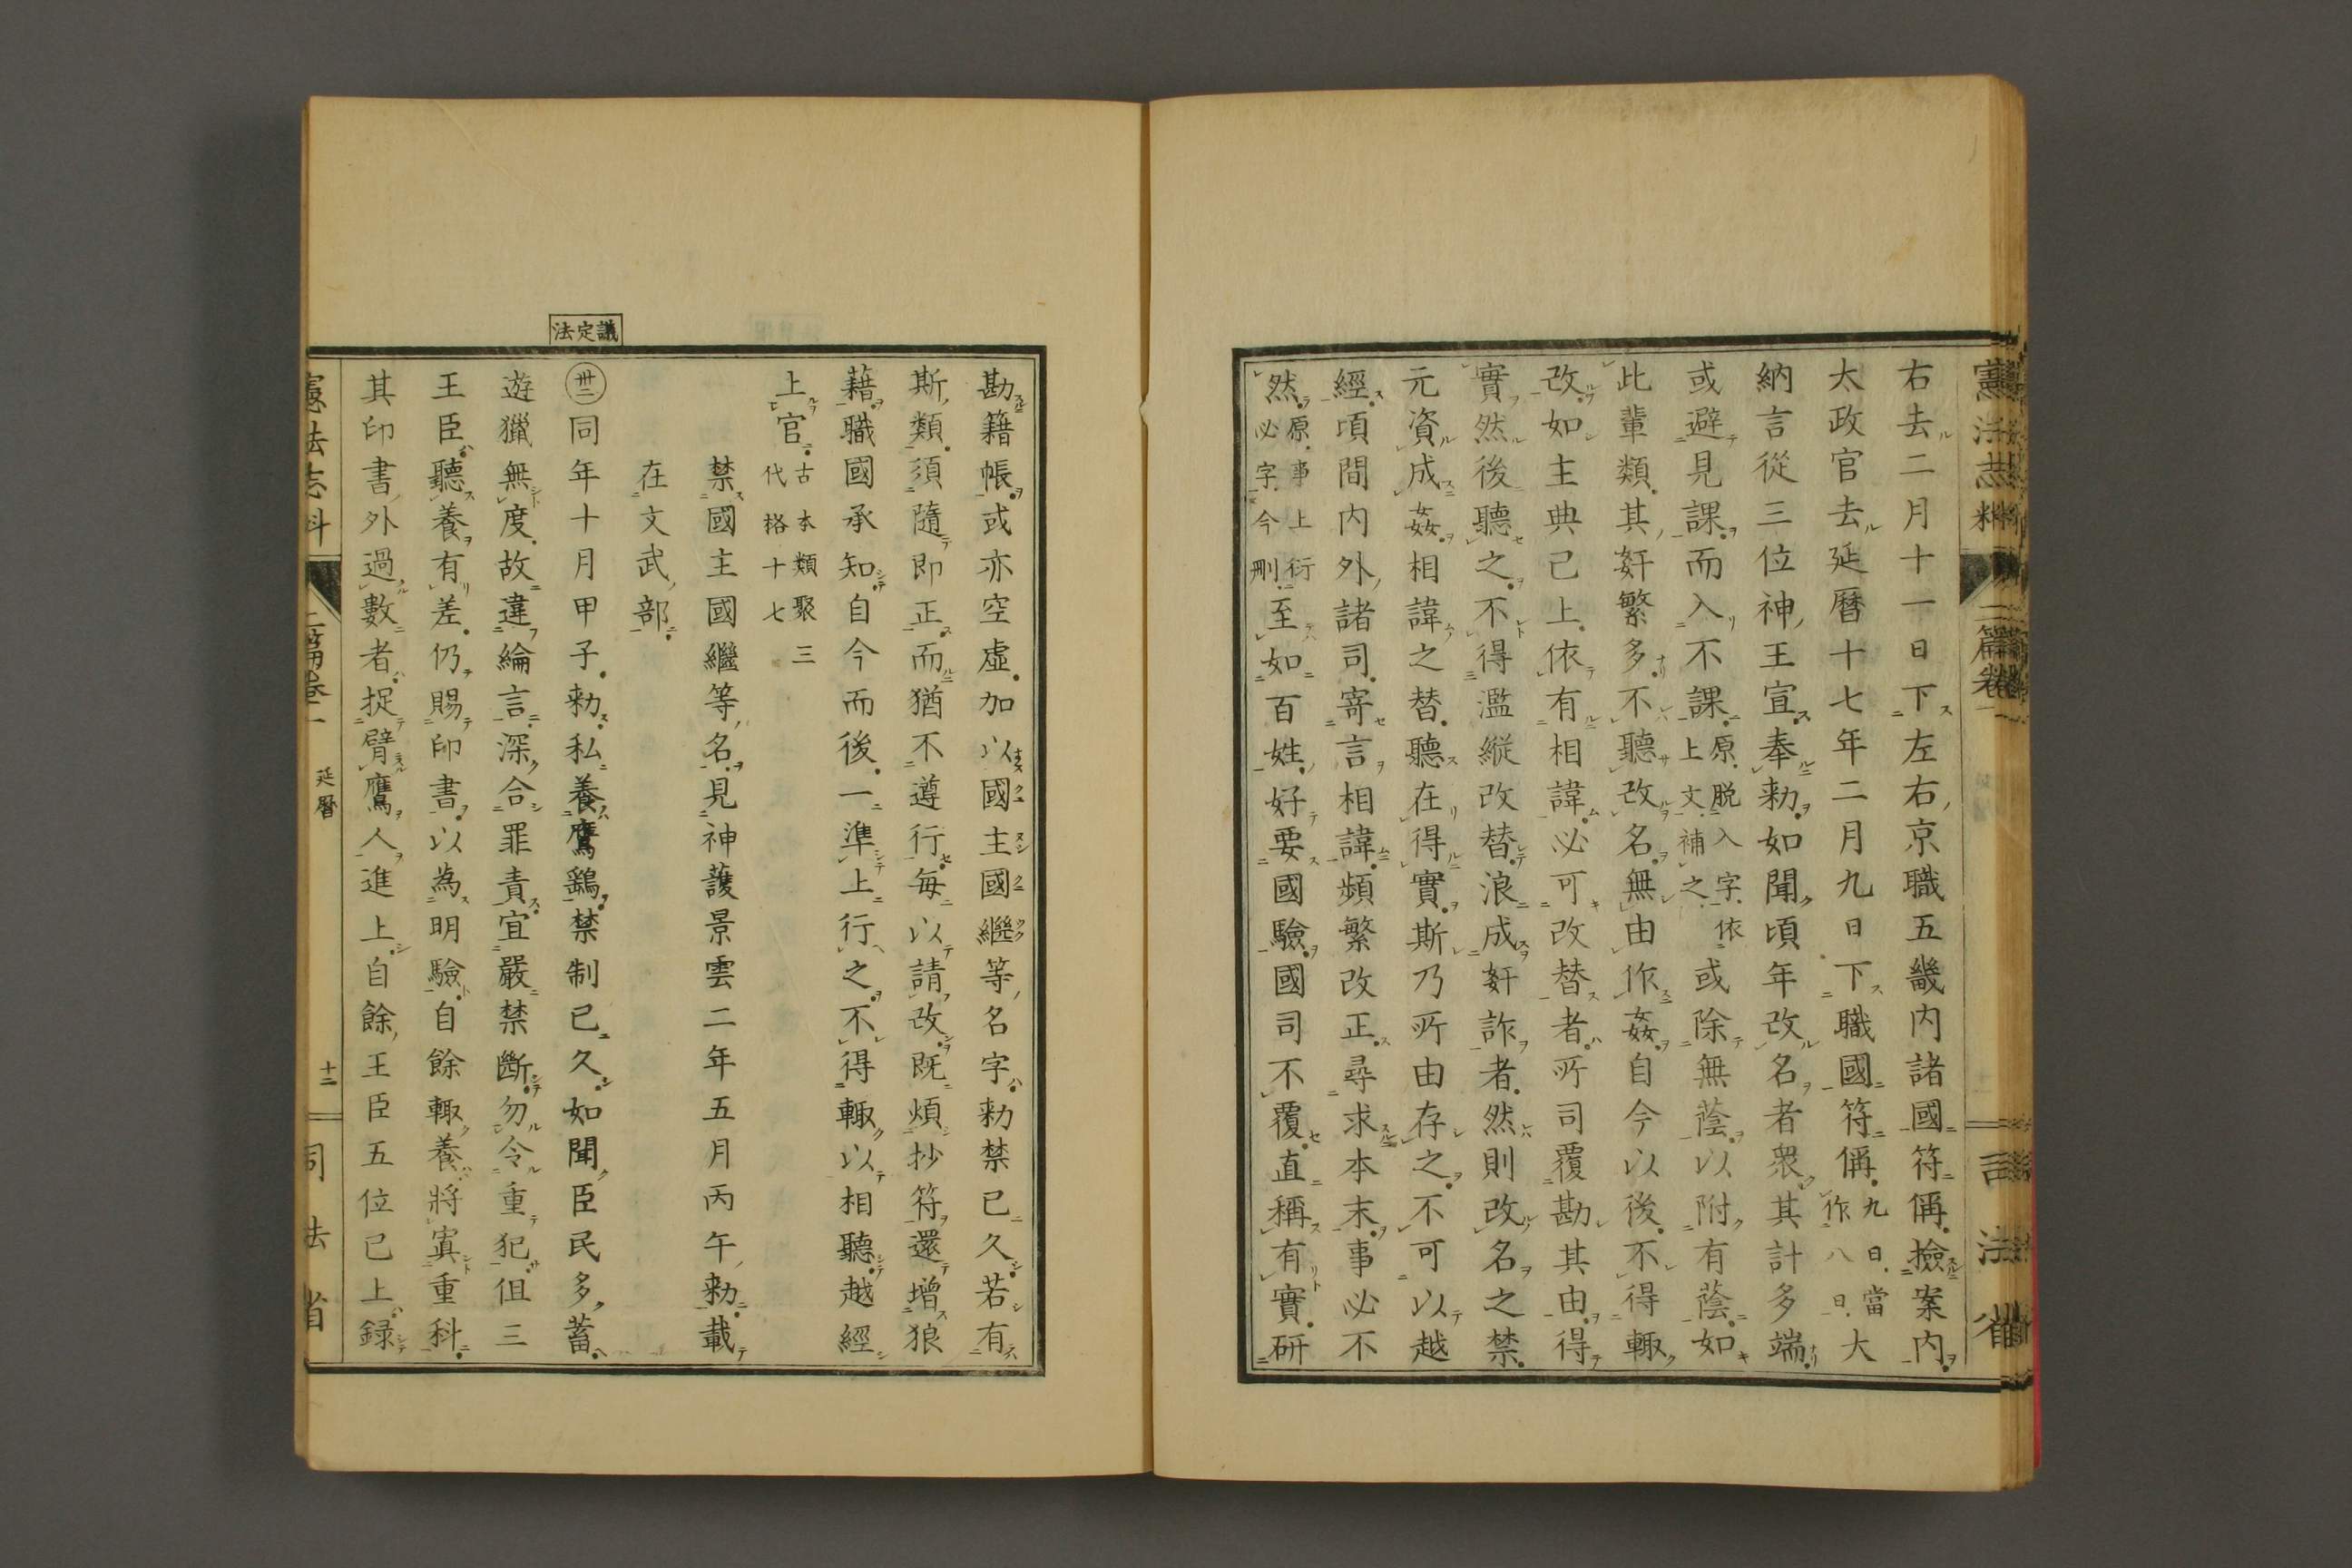 憲法志料
二篇卷一
司法省
右去二月十一日下左右京職五畿内諸國符偁撿案内
太政官去延曆十七年二月九日下職國符偁九日當作八日大
納言從三位神王宣奉勅如聞頃年改名者衆其計多端
或避見課而入不課原脱入字依上文補之或除無蔭以附有蔭如
此輩類其奸繁多不聽改名無由作姦自今以後不得輙
改如主典已上依有相諱必可改替者所司覆勘其由得
實然後聽之不得濫縱改替浪成姧詐者然則改名之禁
元資成姦相諱之替聽在得實斯乃所由存之不可以越
經頃間内外諸司寄言相諱頻繁改正尋求本末事必不
然原事上衍必字今刪至如百姓好要國驗國司不覆直稱有實研
勘籍帳或亦空虚加以國主國繼等名字勅禁已久若有
斯類須隨即正而猶不遵行毎以請改既煩抄符還增狼
藉職國承知自今而後一準上行之不得輙以相聽越經
上官古本類聚三代格十七
禁國主國繼等名見神護景雲二年五月丙午勅載
在文武部
議定法
㊷同年十月甲子勅私養鷹鷂禁制已久如聞臣民多蓄
遊獵無度故違綸言深合罪責宜嚴禁斷勿令重犯但三
王臣聽養有差仍賜印書以為明驗自餘輙養將寘重科
其印書外過數者捉臂鷹人進上自餘王臣五位已上録
憲法志料
二篇卷一
延曆
十二
司法省